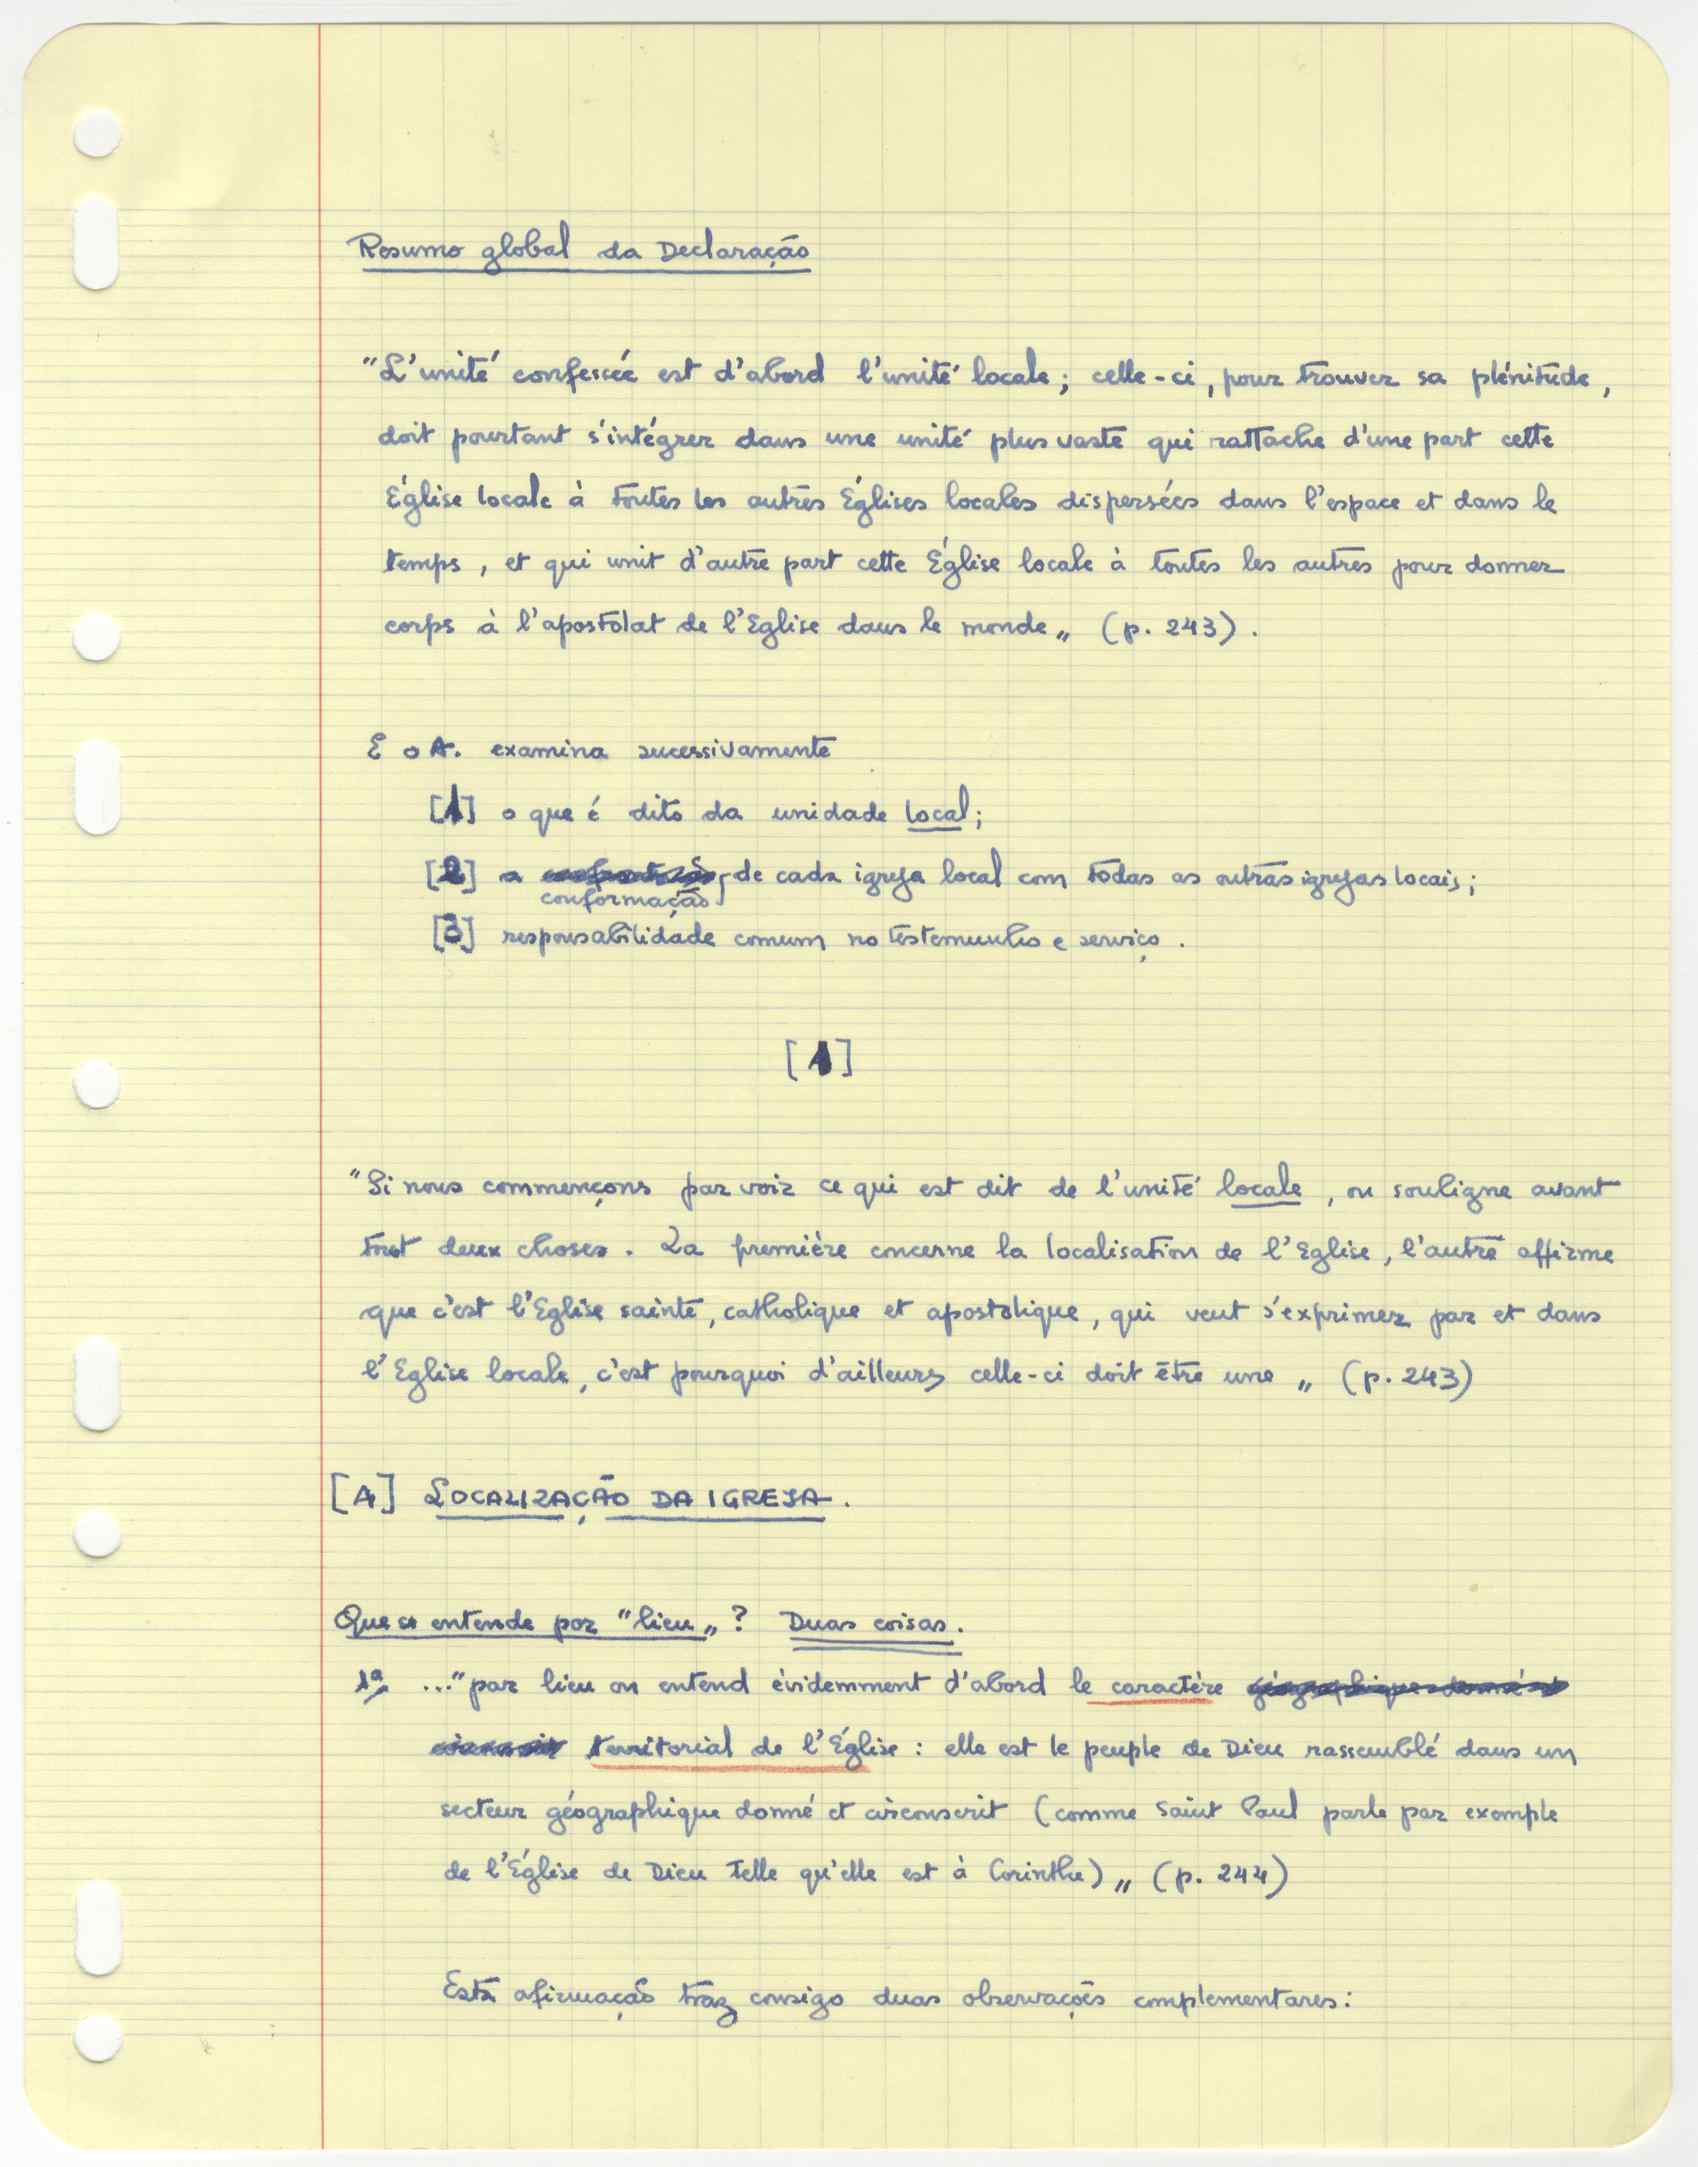 Resumo global da Declaração
"L'unité confessée est d'abord l'unité locale; celle-ci, pour trouver sa plénitude,
doit pourtant s'intégrer dans une unité plus vaste qui rattache d'une part cette
Église locale à toutes les autres Églises locales dispersées dans l'espace et dans le
temps, et qui unit d'autre part cette Église locale à toutes les autres pour donner
corps à l'apostolat de l'Eglise dans le monde„ (p. 243).
E o A. examina sucessivamente
[1] o que é dito da unidade local;
[2] a conformação de cada igreja local com todas as outras igrejas locais;
[3] responsabilidade comum no testemunho e serviço.
[1]
"Si nous commençons par voir ce qui est dit de l'unité locale, on souligne avant
tout deux choses. La première concerne la localisation de l'Eglise, l'autre affirme
que c'est l'Eglise sainte, catholique et apostolique, qui veut s'exprimer par et dans
l'Eglise locale, c'est pourquoi d'ailleurs celle-ci doit être une„ (p. 243)
[A] LOCALIZAÇÃO DA IGREJA.
Que se entende por "lieu„? Duas coisas.
1ª ..."par lieu on entend évidemment d'abord le caractère
territorial de l'Église: elle est le peuple de Dieu rassemblé dans un
secteur géographique donné et circonscrit (comme Saint Paul parle par exemple
de l'Église de Dieu telle qu'elle est à Corinthe)„ (p. 244)
Esta afirmação traz consigo duas observações complementares: